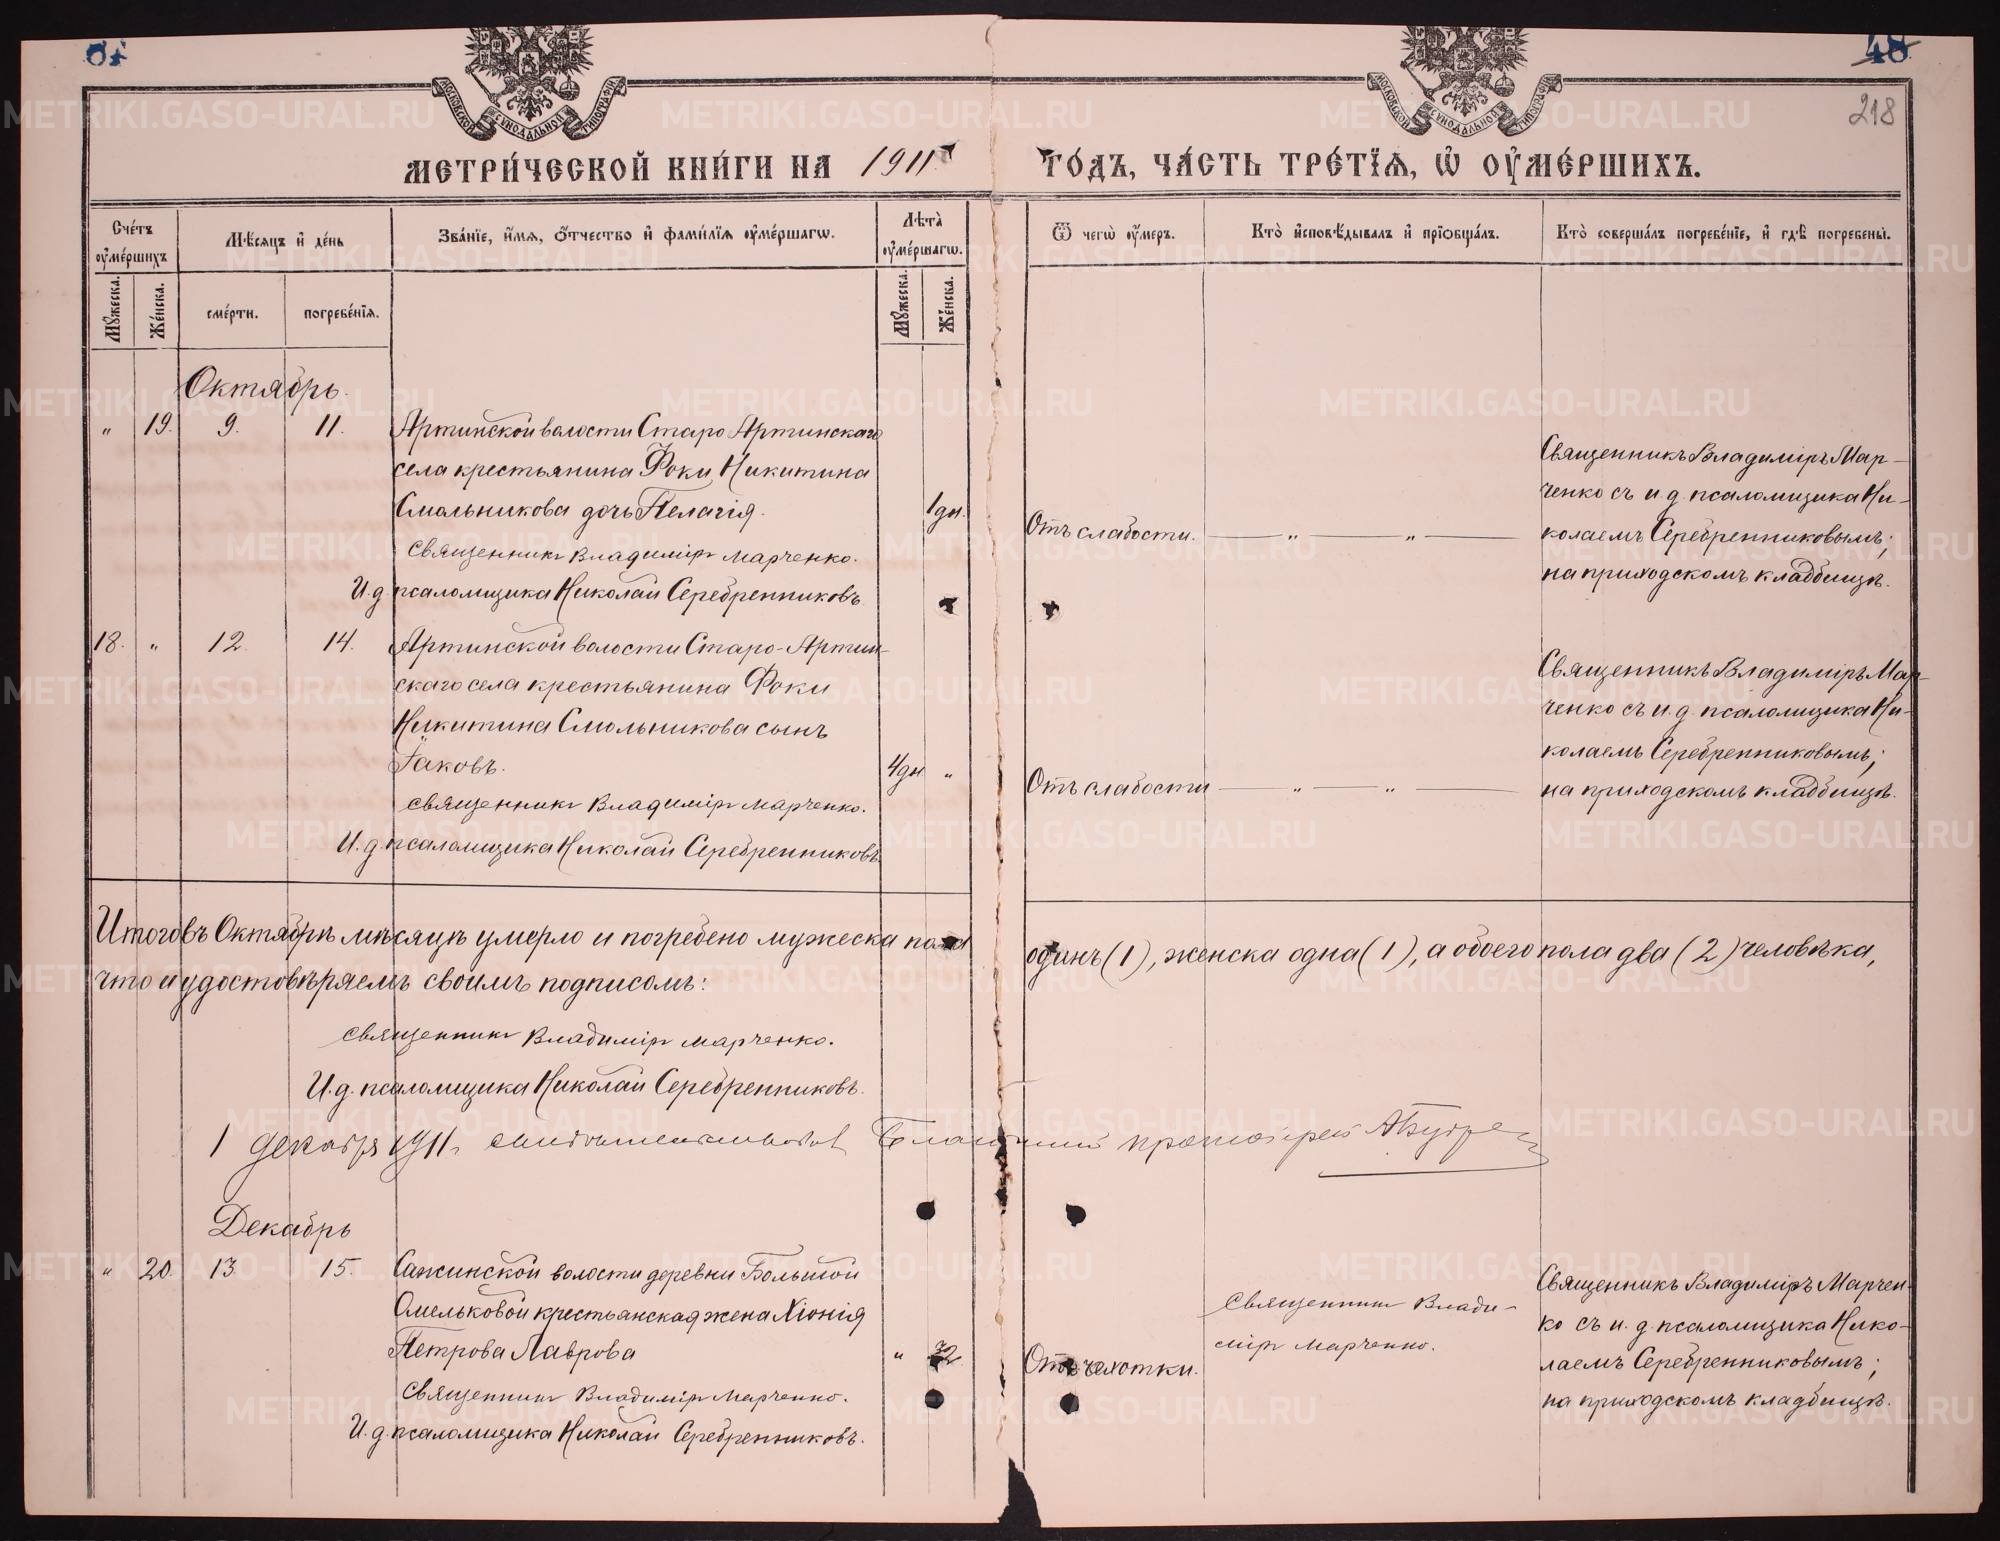 48
218
МОСКОВСКОЙ СѴНОДАЛЬНОЙ ТИПОГРАФІИ
МОСКОВСКОЙ СѴНОДАЛЬНОЙ ТИПОГРАФІИ
МЕТРИ́ЧЕСКОЙ КНИ́ГИ НА 1911 ГО́ДЪ, ЧА́СТЬ ТРЕ́ТЇѦ, Ѡ҆ ОУ҆МЕ́РШИХЪ.
Сче́тъ оу҆ме́ршихъ
Мꙋ́жеска.
Же́нска.
Мѣ́сяцъ и҆ де́нь
сме́рти.
погребе́нїя.
Зва́нїе, и҆́мя, ѻ҆́тчество и҆ фами́лїя оу҆ме́ршагѡ.
Лѣ́та оу҆ме́ршагѡ.
Мꙋ́жеска.
Же́нска.
Ѿ чегѡ̀ оу҆́меръ.
Кто̀ и҆сповѣ́дывалъ и҆ прїѻбща́лъ.
Кто̀ соверша́лъ погребе́нїе, и҆ гдѣ̀ погребены̀.
Октябрь.
" 19. 9. 11. Артинской волости Старо Артинскаго
села крестьянина Фоки Никитина
Смольникова дочь Пелагія. 1 дн.
Отъ слабости. — " — " —
Священникъ Владиміръ Марченко.
И. д. псаломщика Николай Серебренниковъ.
Священникъ Владиміръ Мар-
ченко съ и. д. псаломщика Ни-
колаемъ Серебренниковымъ;
на приходскомъ кладбищѣ.
18. " 12. 14. Артинской волости Старо-Артин-
скаго села крестьянина Фоки
Никитина Смольникова сынъ
Іаковъ. 4 дн "
Отъ слабости — " — " —
Священникъ Владиміръ Марченко.
И. д. псаломщика Николай Серебренниковъ.
Священникъ Владиміръ Мар-
ченко съ и. д. псаломщика Ни-
колаемъ Серебренниковымъ;
на приходскомъ кладбищѣ.
Итого въ Октябрѣ мѣсяцѣ умерло и погребено мужеска пола одинъ (1), женска одна (1), а обоего пола два (2) человѣка,
что и удостовѣряемъ своимъ подписомъ:
Священникъ Владиміръ Марченко.
И. д. псаломщика Николай Серебренниковъ.
1 декабря 1911 г. свидѣтельствовалъ Благочинный протоіерей
Декабрь
" 20. 13 15. Сажинской волости деревни Большой
Омельковой крестьянская жена Хіонія
Петрова Лаврова " 72
Отъ чахотки.
Священникъ Владиміръ Марченко.
И. д. псаломщика Николай Серебренниковъ.
Священникъ Влади-
міръ Марченко.
Священникъ Владиміръ Марчен-
ко съ и. д. псаломщика Нико-
лаемъ Серебренниковымъ;
на приходскомъ кладбищѣ.
METRIKI.GASO-URAL.RU